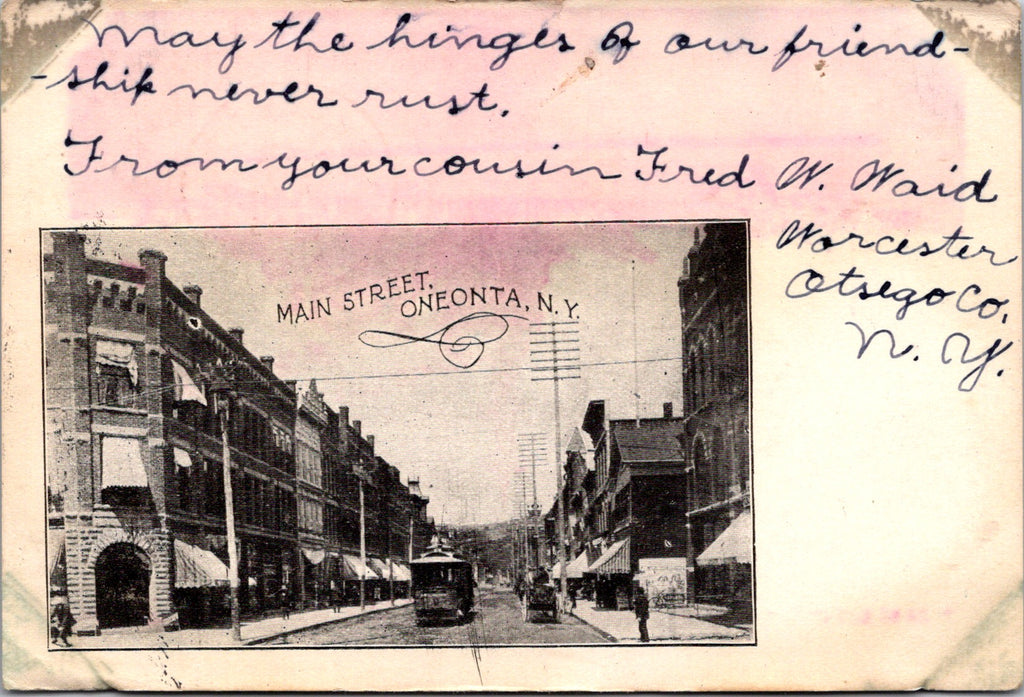 May the hinges of our friend-
-ship never rust.
From your cousin Fred W. Waid
Worcester
Otsego Co.
N. Y.
MAIN STREET,
ONEONTA, N.Y.